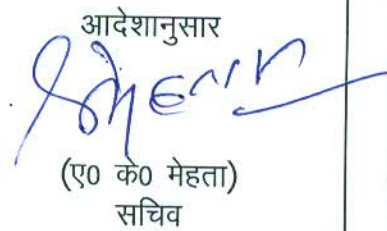 आदेशानुसार
(ए0 के0 मेहता)
सचिव